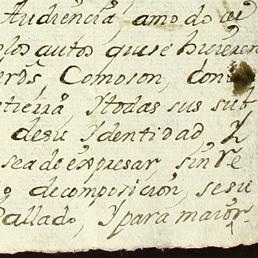 Audiencia, amo do lei
los autos que se hicieren
Comoson, con
tierra, Y todas sus sub
de su Ydentidad Y
sea de expresar, sin
decomposicion, se su
Pallado, Y para maior